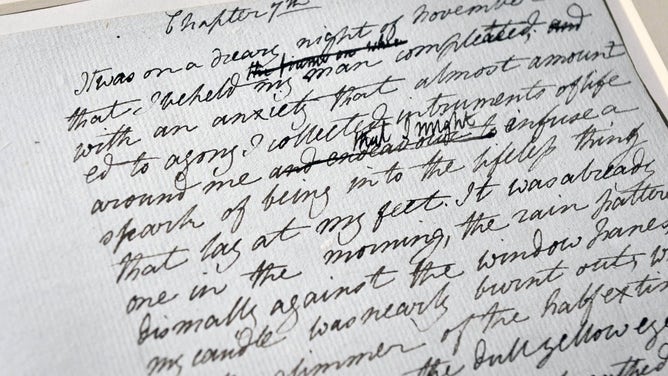 Chapter 7th
It was on a dreary night of November
the frame on
that I beheld my man compleated; and
with an anxiety that almost amount
ed to agony I collected instruments of life
that I might
around me and endeavour to enfuse a
spark of being into the lifeless thing
that lay at my feet. It was already
one in the morning, the rain patter
dismally against the window panes,
my candle was nearly burnt out, w
glimmer of the half extin
the dull yellow eye